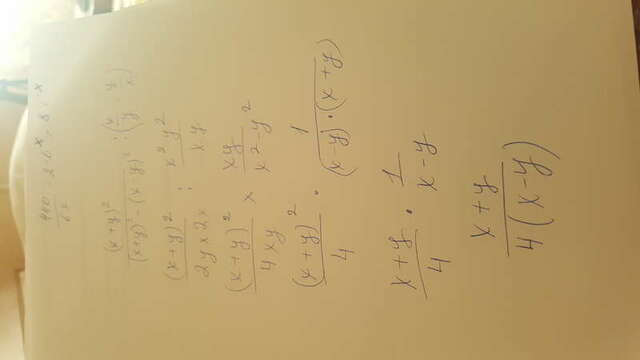 (x+y)² / ((x+y)² - (x-y)²) : (x/y - y/x)
(x+y)² / 2y×2x : x² y² / xy
(x+y)² / 4xy × xy / x²-y²
(x+y)² / 4 · 1 / (x-y)·(x+y)
x+y / 4 · 1 / x-y
x+y / 4(x-y)